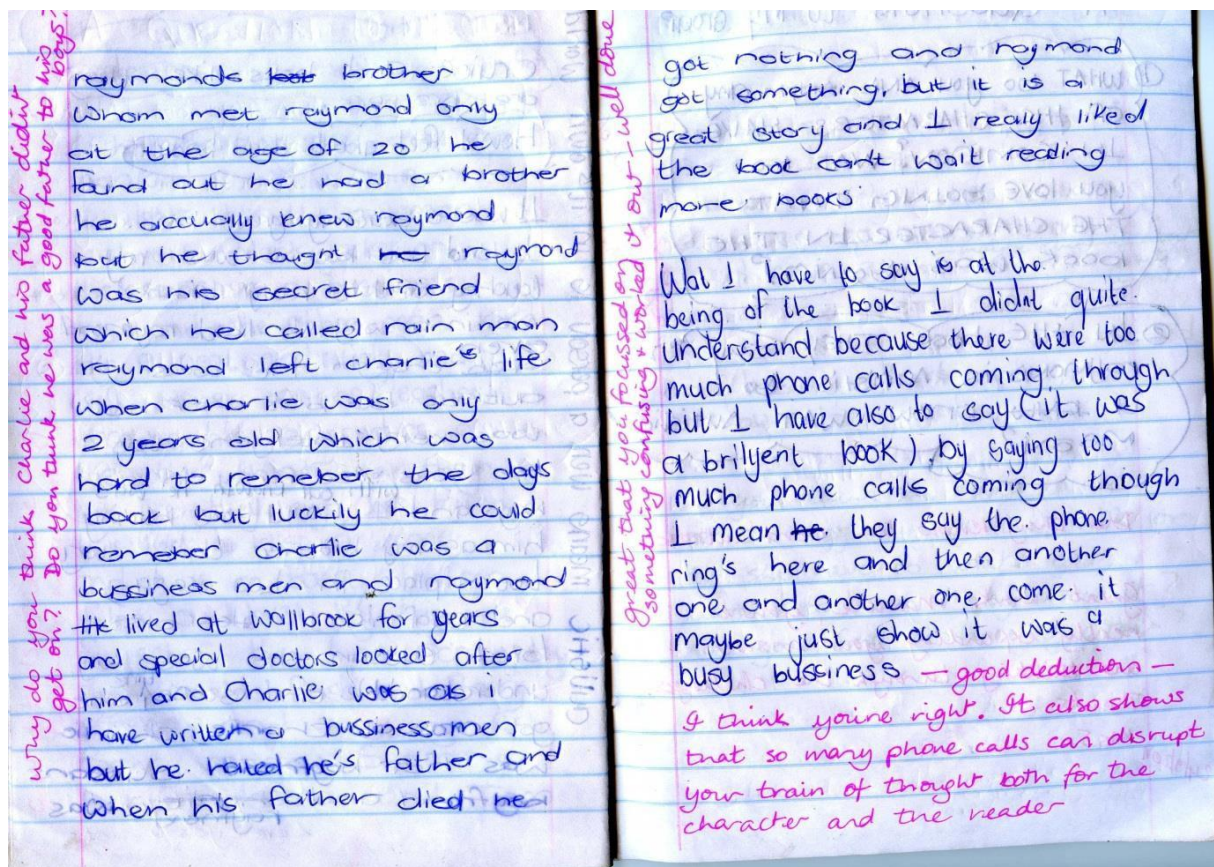 why do you think charlie and his father didint
get on? Do you think he was a good father to his
boys?
raymonds lost brother
whom met raymond only
at the age of 20 he
found out he had a brother
he accually knew raymond
but he thought he raymond
was his secret friend
which he called rain man
raymond left charlie's life
when charlie was only
2 years old which was
hard to remeber the days
back but luckily he could
remeber Charlie was a
bussiness men and raymond
lived at Wallbrook for years
and special doctors looked after
him and Charlie was as i
have written a bussiness men
but he hated he's father and
when his father died he
great that you focussed on
something confusing & worked it out - well done
got nothing and raymond
got something, but it is a
great story and I realy liked
the book can't wait reading
more books
Wat I have to say is at the
being of the book I didnt quite
understand because there were too
much phone calls coming through
but I have also to say (it was
a brilyent book). by saying too
much phone calls coming though
I mean he they say the phone
ring's here and then another
one and another one come it
maybe just show it was a
busy bussiness — good deduction —
I think you're right. It also shows
that so many phone calls can disrupt
your train of thought both for the
character and the reader